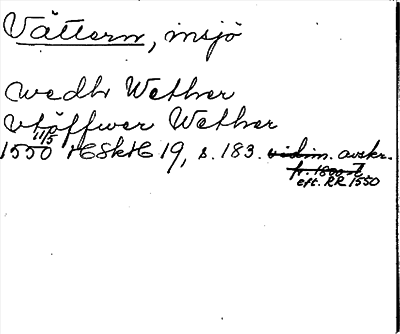 Vättern, insjö
wedh Wether
vtöffwer Wether
1550 11/5 HSkH 19, s. 183. vidim. avskr.
fr. 1800-t.
eft. RR 1550